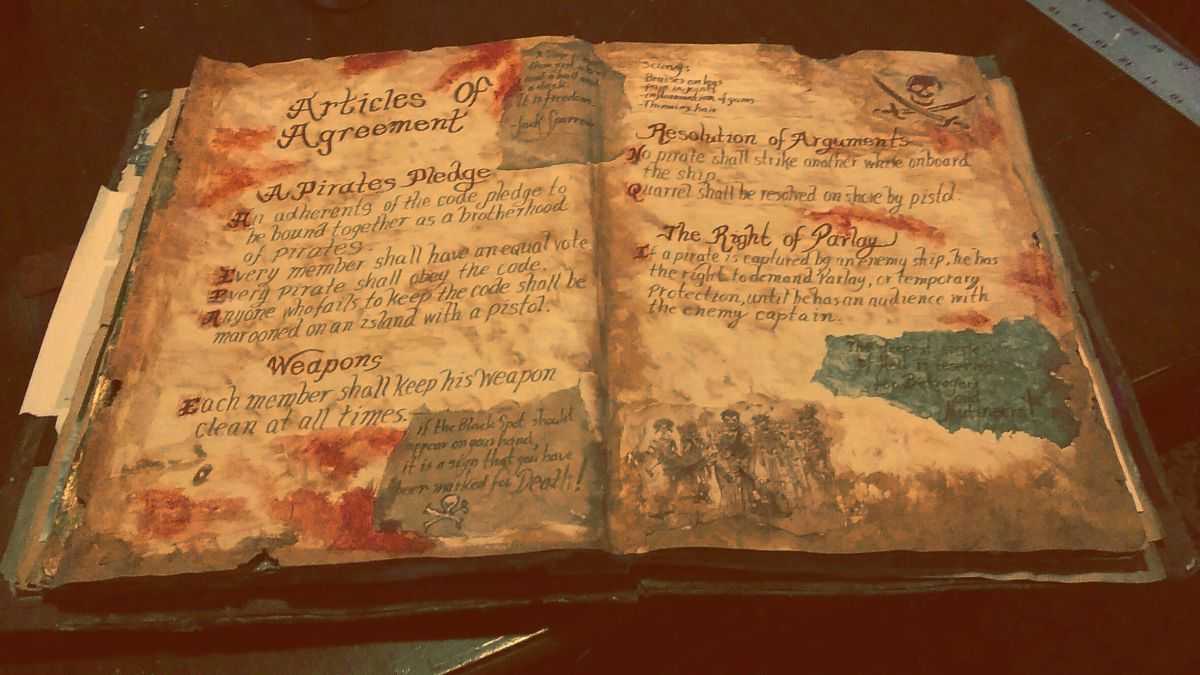 Articles Of
Agreement
it is freedom.
-Jack Sparrow
A Pirates Pledge
An adherents of the code pledge to
be bound together as a brotherhood
of pirates.
Every member shall have an equal vote
Every pirate shall obey the code.
Anyone who fails to keep the code shall be
marooned on an island with a pistol.
Weapons
Each member shall keep his weapon
clean at all times.
if the Black Spot should
appear on your hand,
it is a sign that you have
been marked for Death!
Scurvy:
Bruises on legs
-inflammation of gums
-Thinning hair
Resolution of Arguments
No pirate shall strike another while onboard
the ship.
Quarrel shall be resolved on shore by pistol.
The Right of Parlay
If a pirate is captured by an enemy ship, he has
the right to demand Parlay, or temporary
Protection, until he has an audience with
the enemy captain.
The deepest circle
of hell is reserved
for Betrayers
and
Mutineers!